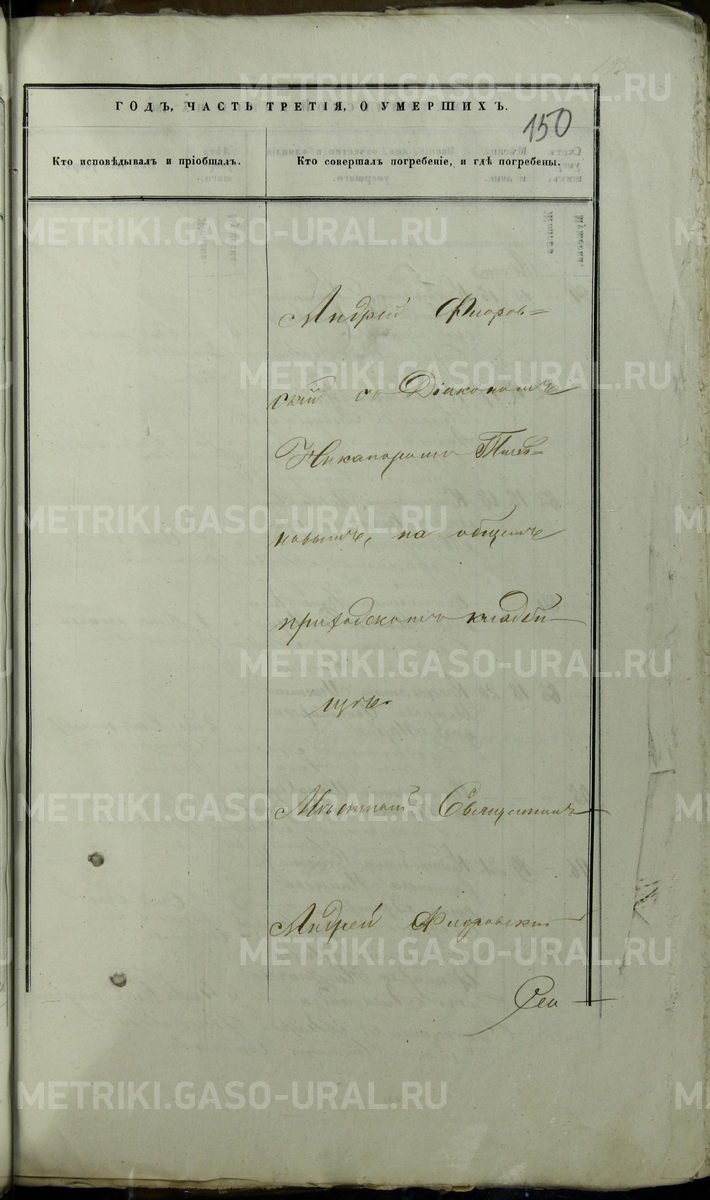 ГОДЪ, ЧАСТЬ ТРЕТІЯ, О УМЕРШИХЪ.
150
Кто исповѣдывалъ и пріобщалъ.
Кто совершалъ погребеніе, и гдѣ погребены.
Андрей Флоров-
скій съ Діакономъ
Никаноромъ
новымъ, на общемъ
приходскомъ кладби-
щѣ.
Мѣстный Священникъ
Андрей Флоровскій
METRIKI.GASO-URAL.RU